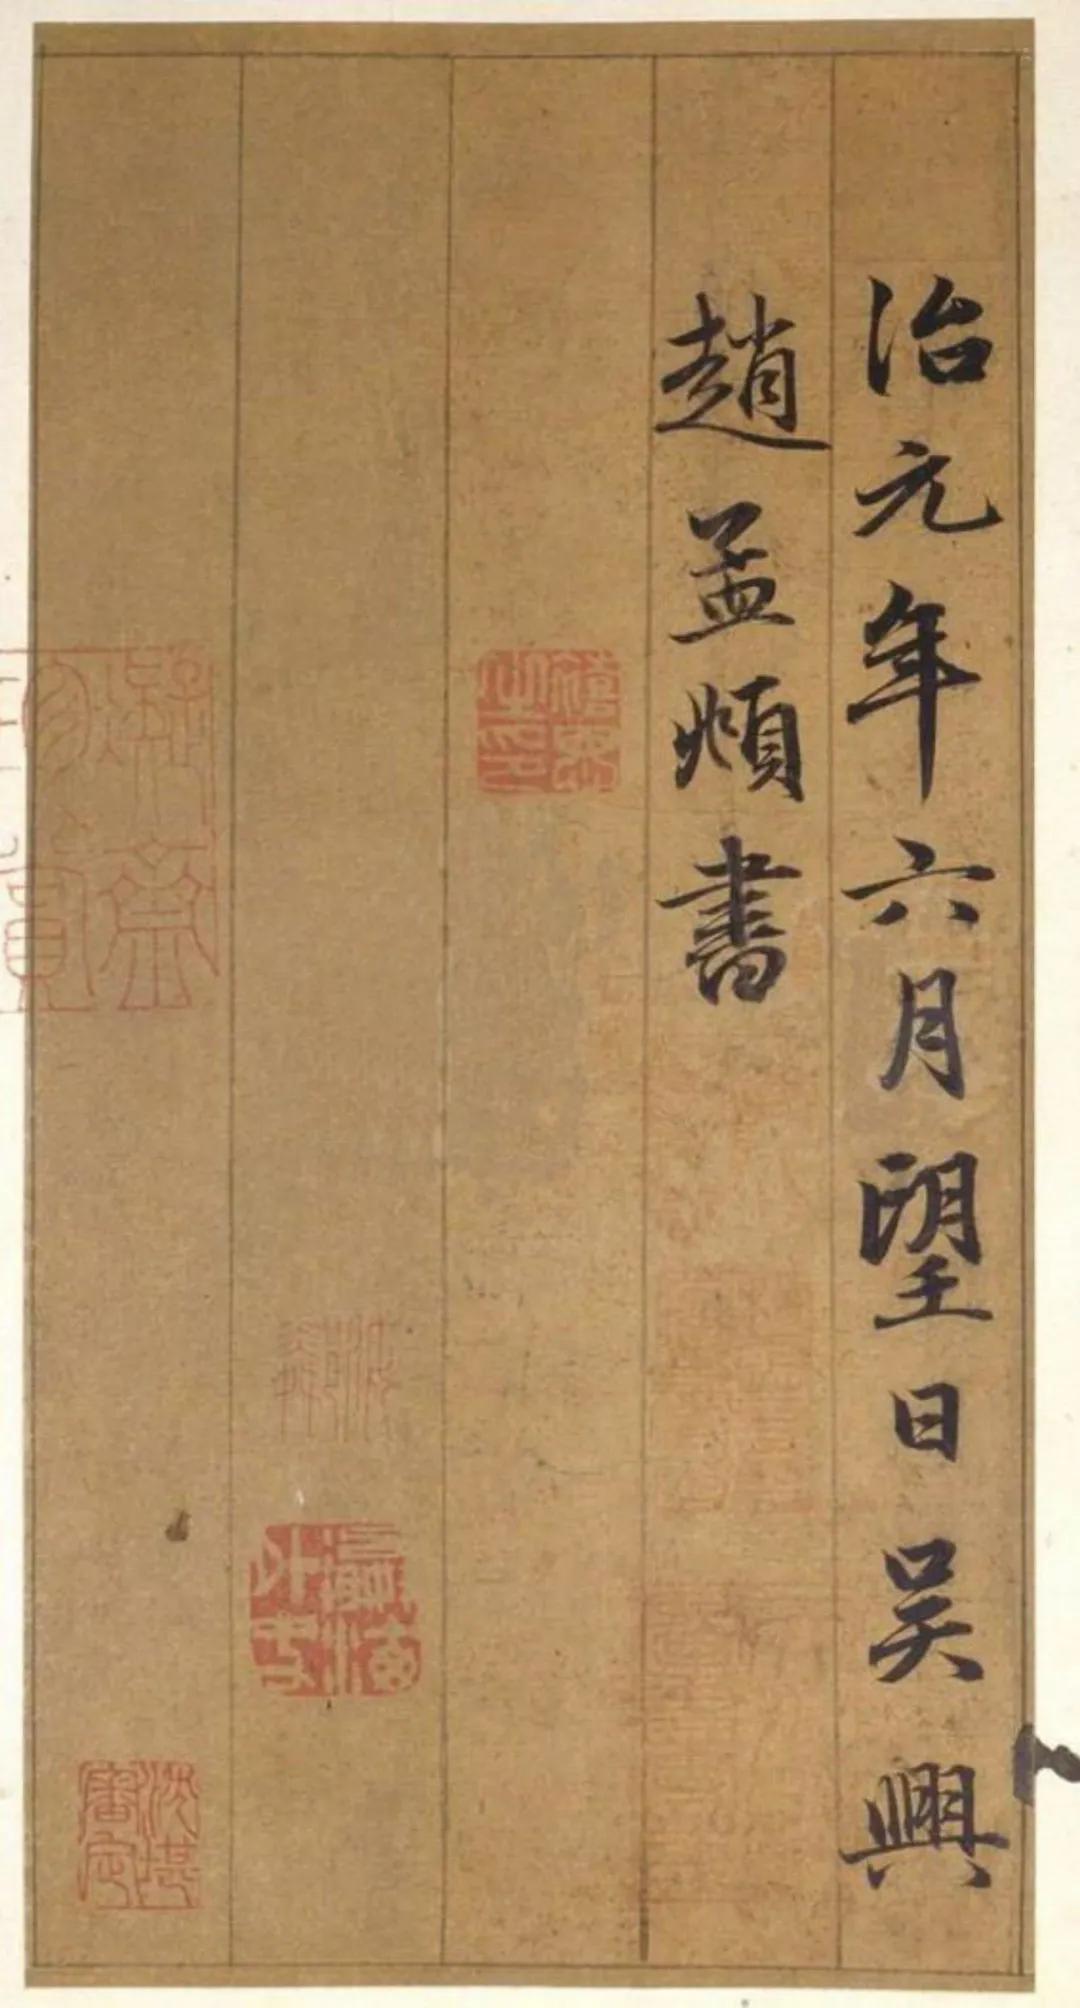 治元年六月望日吴興
趙孟頫書